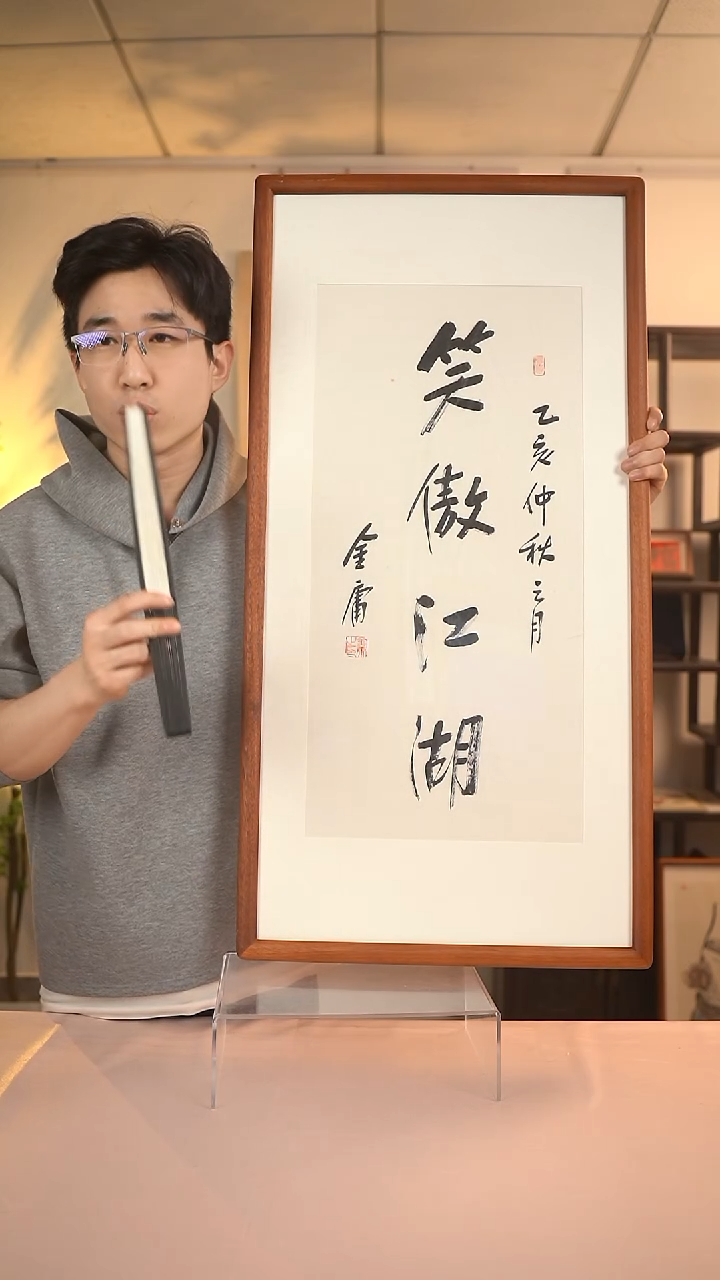 乙亥仲秋之月
笑傲江湖
金庸